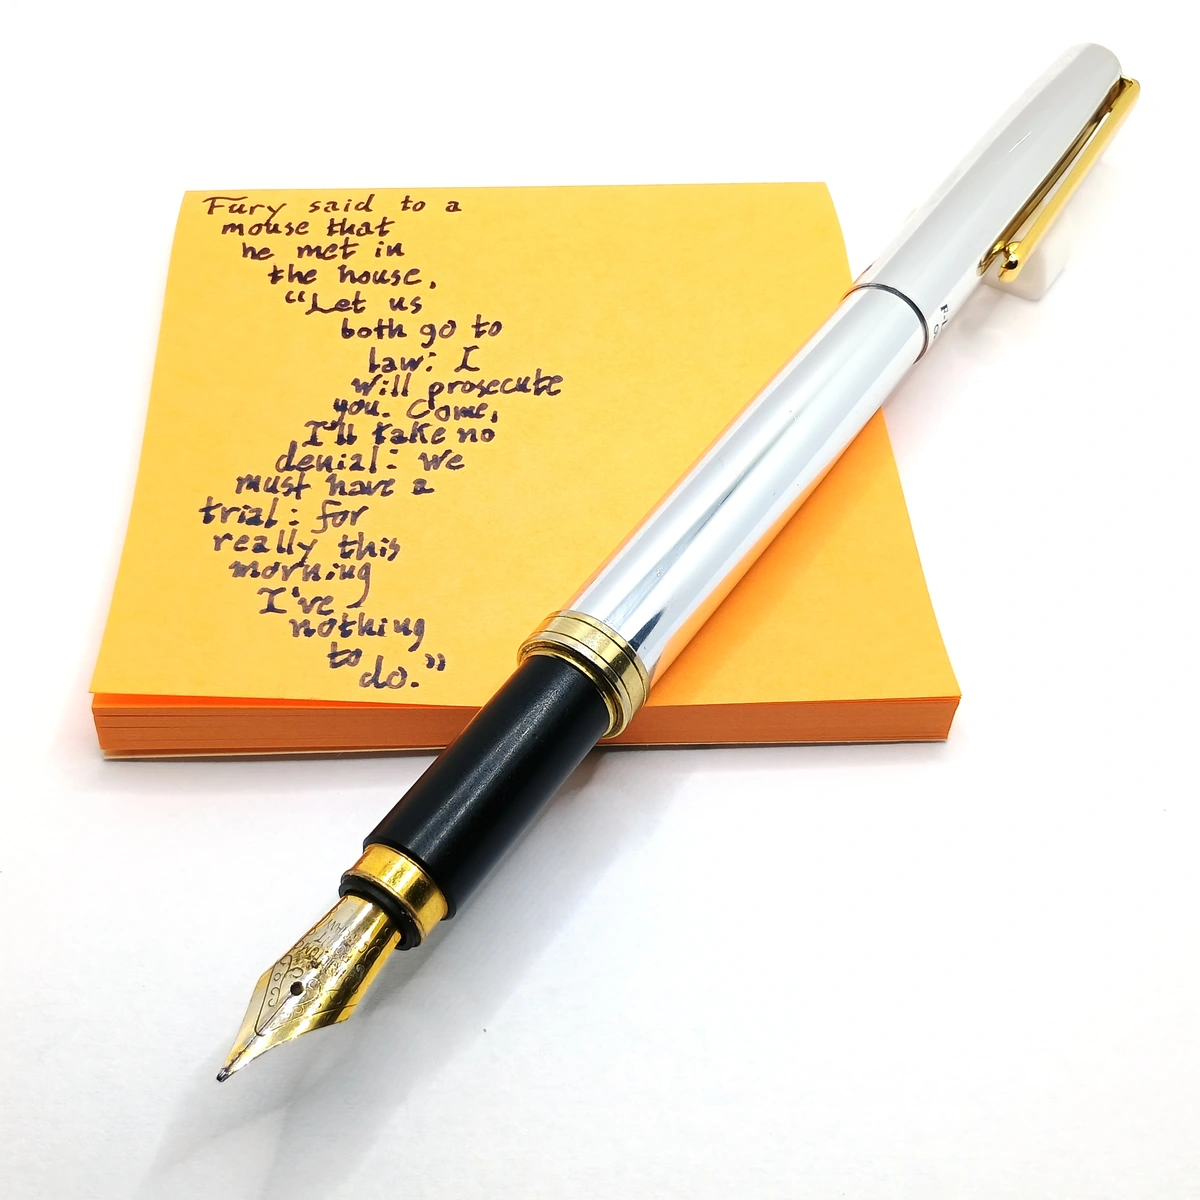 Fury said to a
mouse that
he met in
the house,
“Let us
both go to
law: I
will prosecute
you. Come,
I'll take no
denial: we
must have a
trial: for
really this
morning
I've
nothing
to
do.”